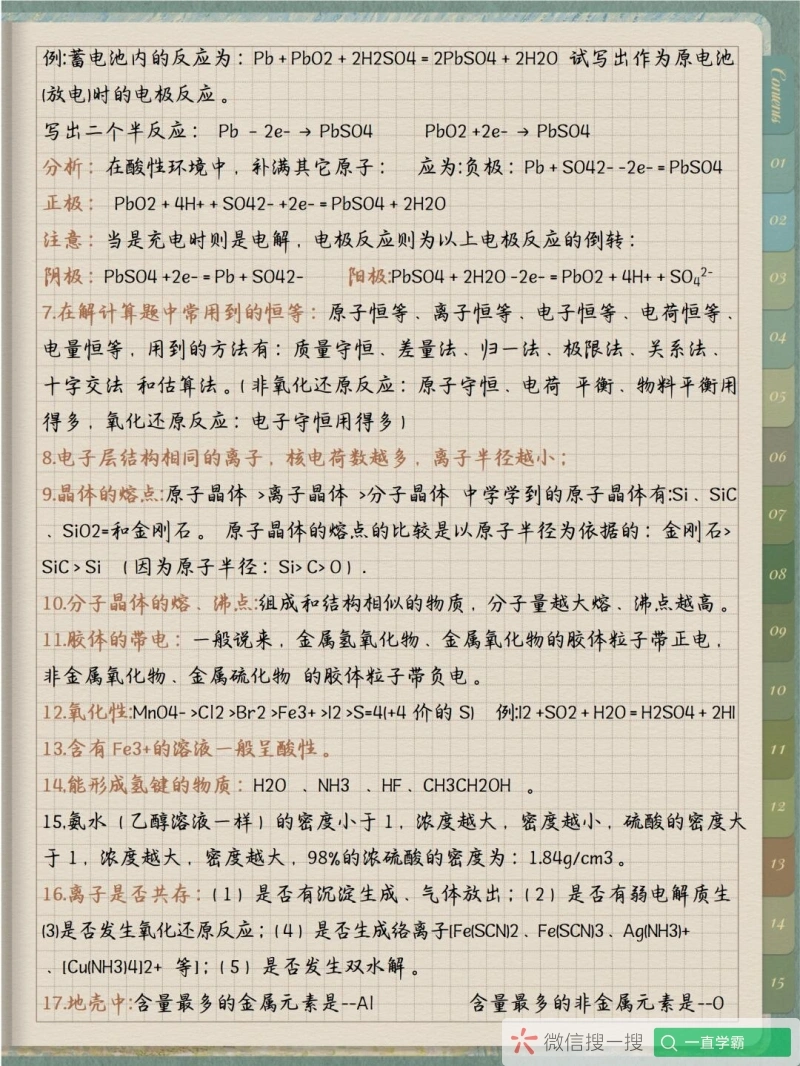 例:蓄电池内的反应为：Pb + PbO2 + 2H2SO4 = 2PbSO4 + 2H2O 试写出作为原电池
(放电)时的电极反应。
写出二个半反应： Pb – 2e- → PbSO4 PbO2 +2e- → PbSO4
分析：在酸性环境中，补满其它原子： 应为:负极：Pb + SO42- -2e- = PbSO4
正极： PbO2 + 4H+ + SO42- +2e- = PbSO4 + 2H2O
注意：当是充电时则是电解，电极反应则为以上电极反应的倒转：
阴极：PbSO4 +2e- = Pb + SO42- 阳极:PbSO4 + 2H2O -2e- = PbO2 + 4H+ + SO₄²⁻
7.在解计算题中常用到的恒等：原子恒等、离子恒等、电子恒等、电荷恒等、
电量恒等，用到的方法有：质量守恒、差量法、归一法、极限法、关系法、
十字交法 和估算法。(非氧化还原反应：原子守恒、电荷 平衡、物料平衡用
得多，氧化还原反应：电子守恒用得多)
8.电子层结构相同的离子，核电荷数越多，离子半径越小；
9.晶体的熔点:原子晶体 >离子晶体 >分子晶体 中学学到的原子晶体有:Si、SiC
、SiO2=和金刚石。 原子晶体的熔点的比较是以原子半径为依据的：金刚石>
SiC > Si （因为原子半径：Si> C> O）.
10.分子晶体的熔、沸点:组成和结构相似的物质，分子量越大熔、沸点越高。
11.胶体的带电：一般说来，金属氢氧化物、金属氧化物的胶体粒子带正电，
非金属氧化物、金属硫化物 的胶体粒子带负电。
12.氧化性:MnO4- >Cl2 >Br2 >Fe3+ >I2 >S=4(+4 价的 S) 例:I2 +SO2 + H2O = H2SO4 + 2HI
13.含有 Fe3+的溶液一般呈酸性。
14.能形成氢键的物质：H2O 、NH3 、HF、CH3CH2OH 。
15.氨水（乙醇溶液一样）的密度小于 1，浓度越大，密度越小，硫酸的密度大
于 1，浓度越大，密度越大，98%的浓硫酸的密度为：1.84g/cm3。
16.离子是否共存：(1) 是否有沉淀生成、气体放出；(2) 是否有弱电解质生
(3)是否发生氧化还原反应；(4) 是否生成络离子[Fe(SCN)2、Fe(SCN)3、Ag(NH3)+
、[Cu(NH3)4]2+ 等]；(5) 是否发生双水解。
17.地壳中:含量最多的金属元素是--Al 含量最多的非金属元素是--O
Contents
01
02
03
04
05
06
07
08
09
10
11
12
13
14
15
微信搜一搜 一直学霸